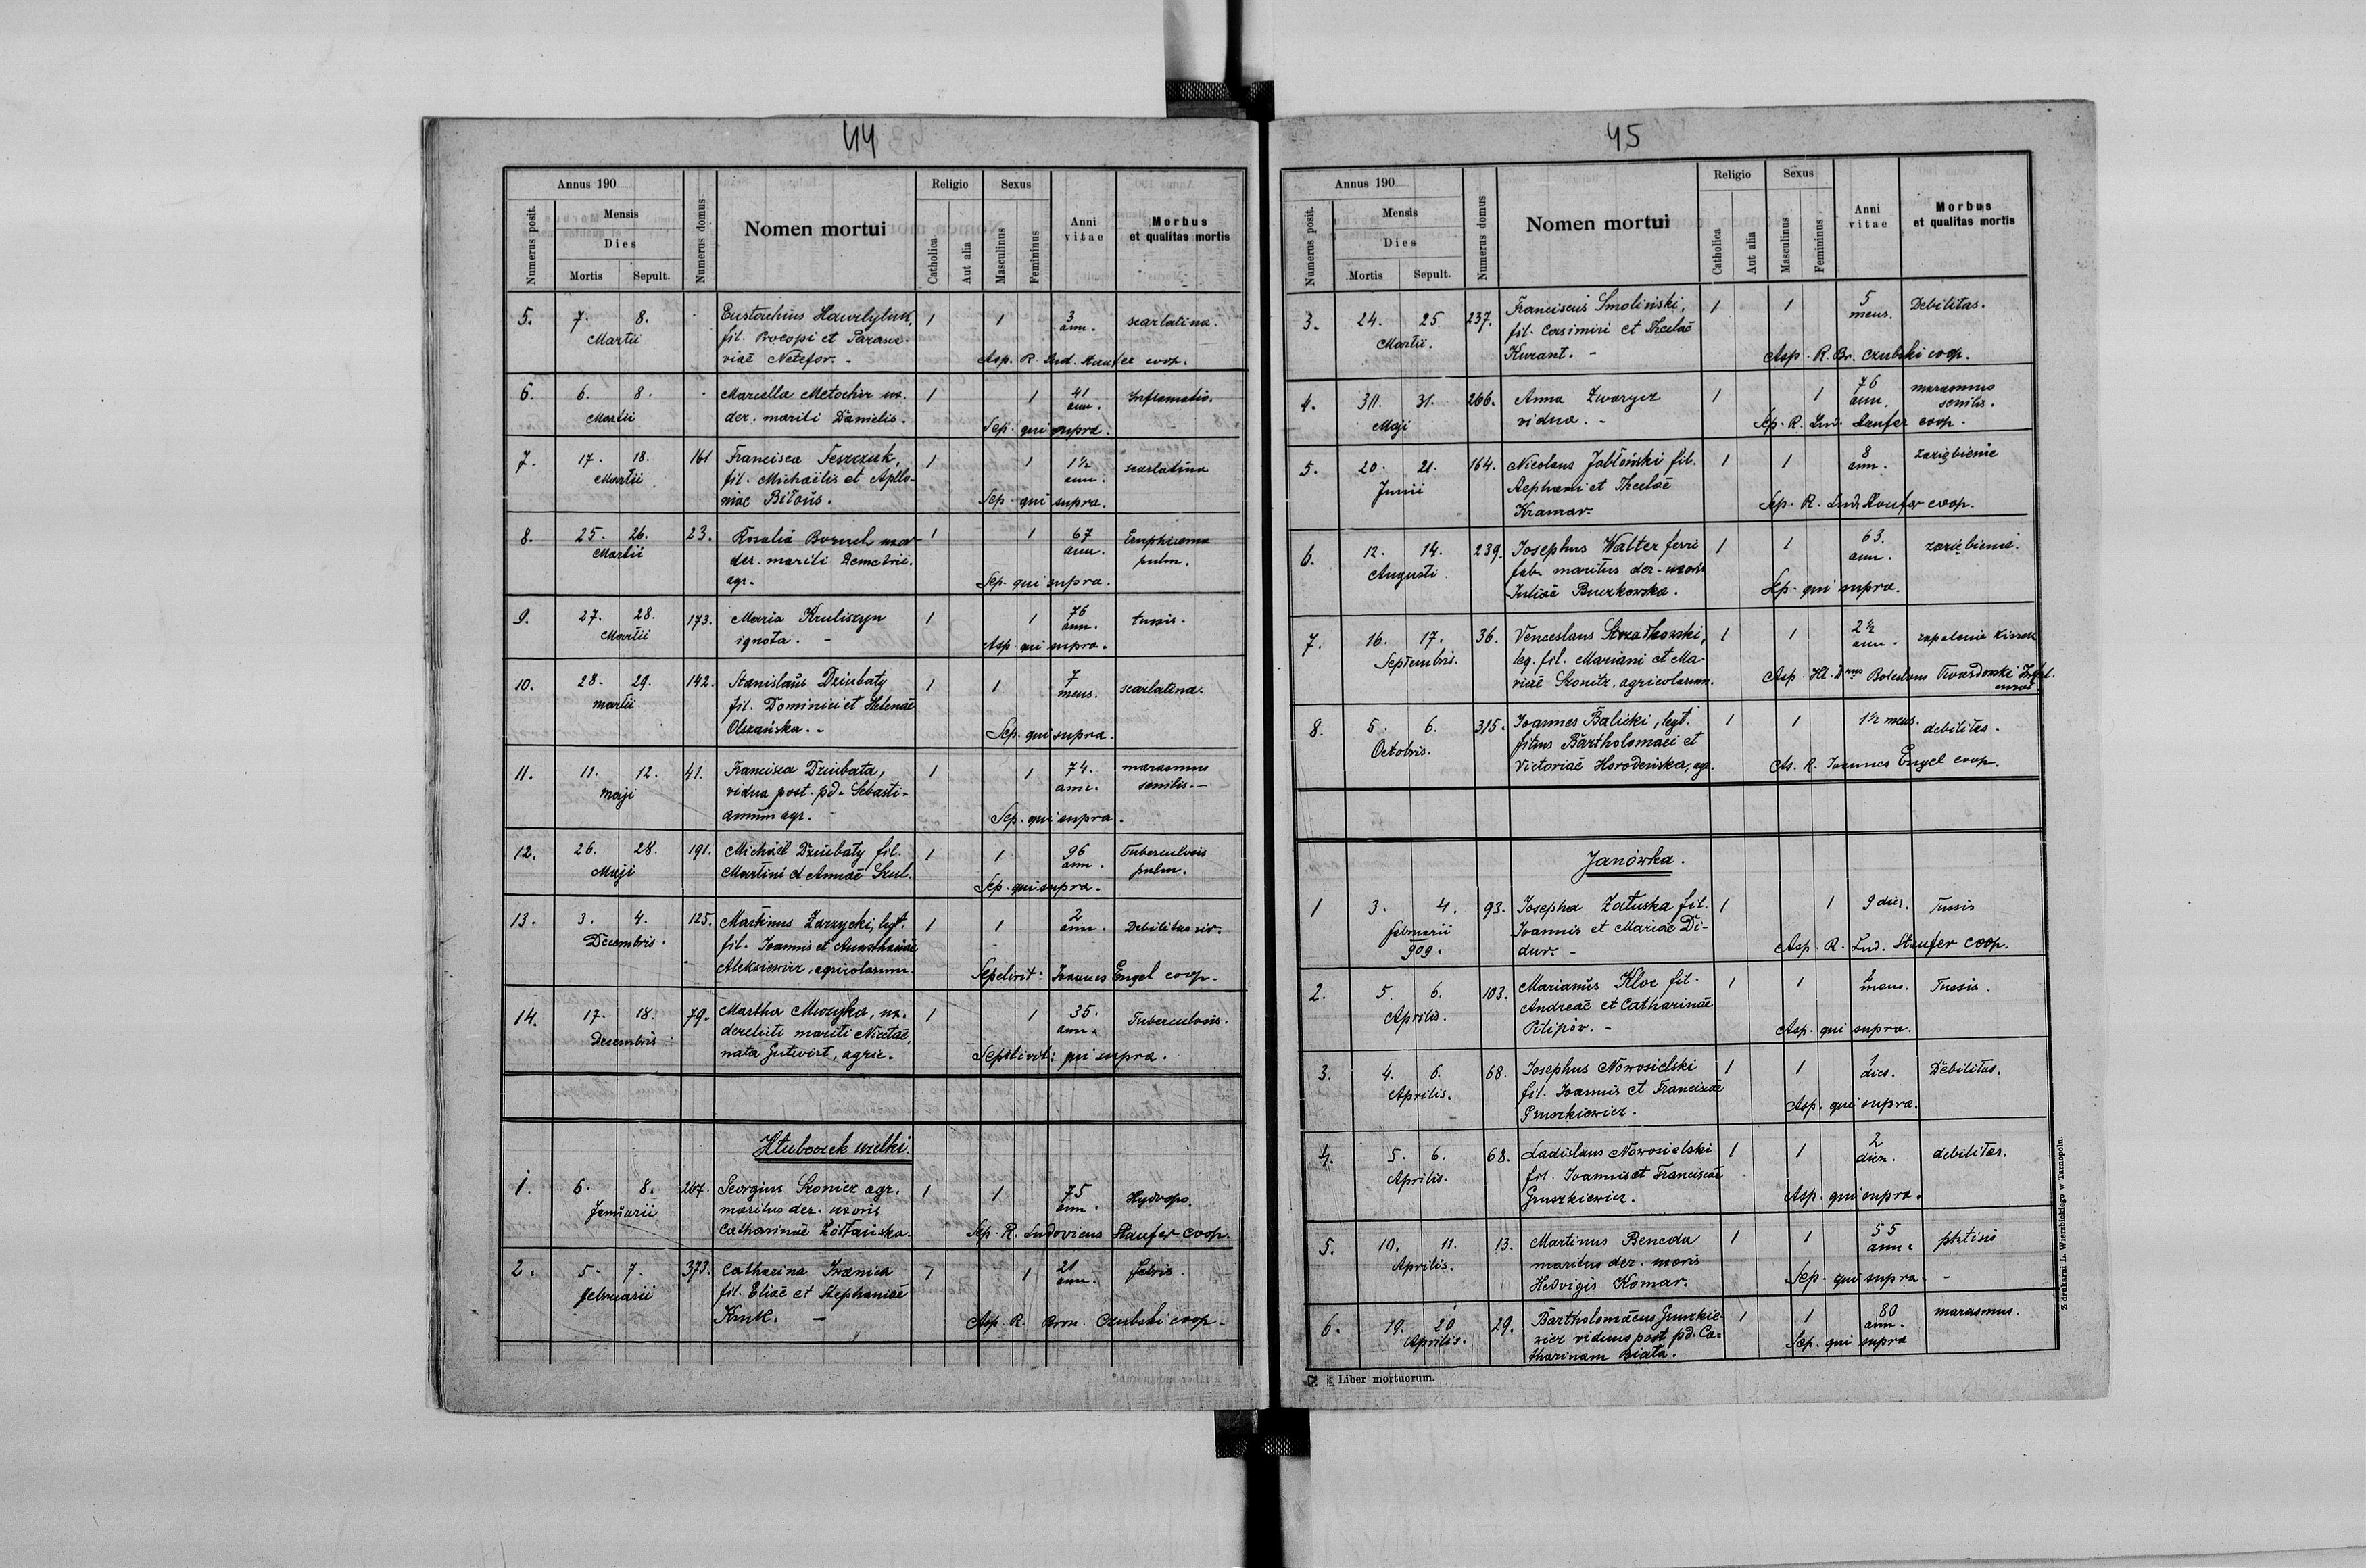 44
Annus 190
Numerus posit.
Mensis
Dies
Mortis Sepult.
Numerus domus
Nomen mortui
Religio
Catholica
Aut alia
Sexus
Masculinus
Femininus
Anni vitae
Morbus et qualitas mortis
5. 7. 8. Eustachius Hawrlyluk, 1 1 3 scarlatina.
Martii fil. Procopi et Parasce- ann.
viae Netefor. - Asp. R. Lud. Staufer coop.
6. 6. 8. Marcella Metochir ux. 1 1 41 Inflamatio.
Martii der. mariti Danielis. ann.
Sep. qui supra.
7. 17. 18. 161 Francisca Feszczuk, 1 1 1½ scarlatina
Martii fil. Michaëlis et Apllo- ann.
niae Bitous. Sep. qui supra.
8. 25. 26. 23. Rosalia Boruch uxor 1 1 67 Emphisema
Martii der. mariti Demetrii. ann. pulm.
agr. Sep. qui supra.
9. 27. 28. 173. Maria Kruliszyn 1 1 76 tussis.
Martii ignota. - ann.
Asp. qui supra.
10. 28. 29. 142. Stanislaus Dziubaty 1 1 7 scarlatina.
martii fil. Dominici et Helenae mens.
Olszańska. - Sep. qui supra.
11. 11. 12. 41. Francisca Dziubata, 1 1 74. marasmus
maji vidua post. pd. Sebasti- ann. senilis. -
anum agr. Sep. qui supra.
12. 26. 28. 191. Michaël Dziubaty fil. 1 1 96 Tuberculosis
Maji Martini et Annae Szul. ann. pulm.
Sep. qui supra.
13. 3. 4. 125. Martinus Zarzycki, legt. 1 1 2 Debilitas vir.
Decembris. fil. Joannis et Anasthasiae ann.
Aleksiewicz, agricolarum. Sepelivit: Joannes Engel coop.
14. 17. 18. 79. Martha Muzyka, ux. 1 1 35. Tuberculosis.
Decembris. derelicti mariti Nicetae, ann.
nata Gutwirt, agric. Sepelivit: qui supra.
Hłuboczek wielki.
1. 6. 8. 267. Georgius Szonicz agr. 1 1 75 Hydrops.
Januarii maritus der. uxoris ann.
Catharinae Żółtańska. Sep. R. Ludovicus Staufer coop.
2. 5. 7. 373. Catharina Iwanica 1 1 21 febris.
februarii fil. Eliae et Stephaniae ann.
Kruk. - Asp. R. Bron. Czubski coop.
45
Annus 190
Numerus posit.
Mensis
Dies
Mortis Sepult.
Numerus domus
Nomen mortui
Religio
Catholica
Aut alia
Sexus
Masculinus
Femininus
Anni vitae
Morbus et qualitas mortis
3. 24. 25 237. Franciscus Smoliński, 1 1 5 Debilitas.
Martii. fil. Casimiri et Theclae mens.
Kurant. - Asp. R. Br. Czubski coop.
4. 30. 31. 266. Anna Zwarycz 1 1 76 marasmus
Maji vidua. - ann. senilis.
Sep. R. Lud. Staufer coop.
5. 20. 21. 164. Nicolaus Jabłoński fil. 1 1 8 zaziębienie
Junii Stephani et Theclae ann.
Kramar. Sep. R. Lud. Staufer coop.
6. 12. 14. 239. Josephus Walter ferri 1 1 63. zaziębienie.
Augusti. fab. maritus der. uxoris ann.
Juliae Buczkowska. Sep. qui supra.
7. 16. 17. 36. Venceslaus Strzałkowski, 1 1 2½ zapalenie kiszek
Septembris. leg. fil. Mariani et Ma- ann.
riae Szonitz, agricolarum. Asp. Boleslaus Twardowski
8. 5. 6. 315. Joannes Balicki, legt. 1 1 1½ mens. debilitas.
Octobris. filius Bartholomaei et
Victoriae Horodeńska, agr. As. R. Joannes Engel coop.
Janówka.
1 3. 4. 93. Josepha Załuska fil. 1 1 9 dier. Tussis
februarii Joannis et Mariae Di-
909. dur. - Asp. R. Lud. Staufer coop.
2. 5. 6. 103. Marianus Kloc fil. 1 1 2 Tussis.
Aprilis. Andreae et Catharinae mens.
Pilipów. - Asp. qui supra.
3. 4. 6. 68. Josephus Nowosielski 1 1 1 Debilitas.
Aprilis. fil. Joannis et Franciscae dies.
Gruszkiewicz. Asp. qui supra.
4. 5. 6. 68. Ladislaus Nowosielski 1 1 2 debilitas.
Aprilis. fil. Joannis et Franciscae dier.
Gruszkiewicz. Asp. qui supra.
5. 10. 11. 13. Martinus Beneda 1 1 55 phtisis
Aprilis. maritus der. uxoris ann.
Hedvigis Komar. Sep. qui supra. -
6. 19. 20 29. Bartholomaeus Gruszkie- 1 1 80 marasmus.
Aprilis. wicz viduus post pd. Ca- ann.
tharinam Biała. Sep. qui supra
Liber mortuorum.
Z drukarni L. Wierzbickiego w Tarnopolu.